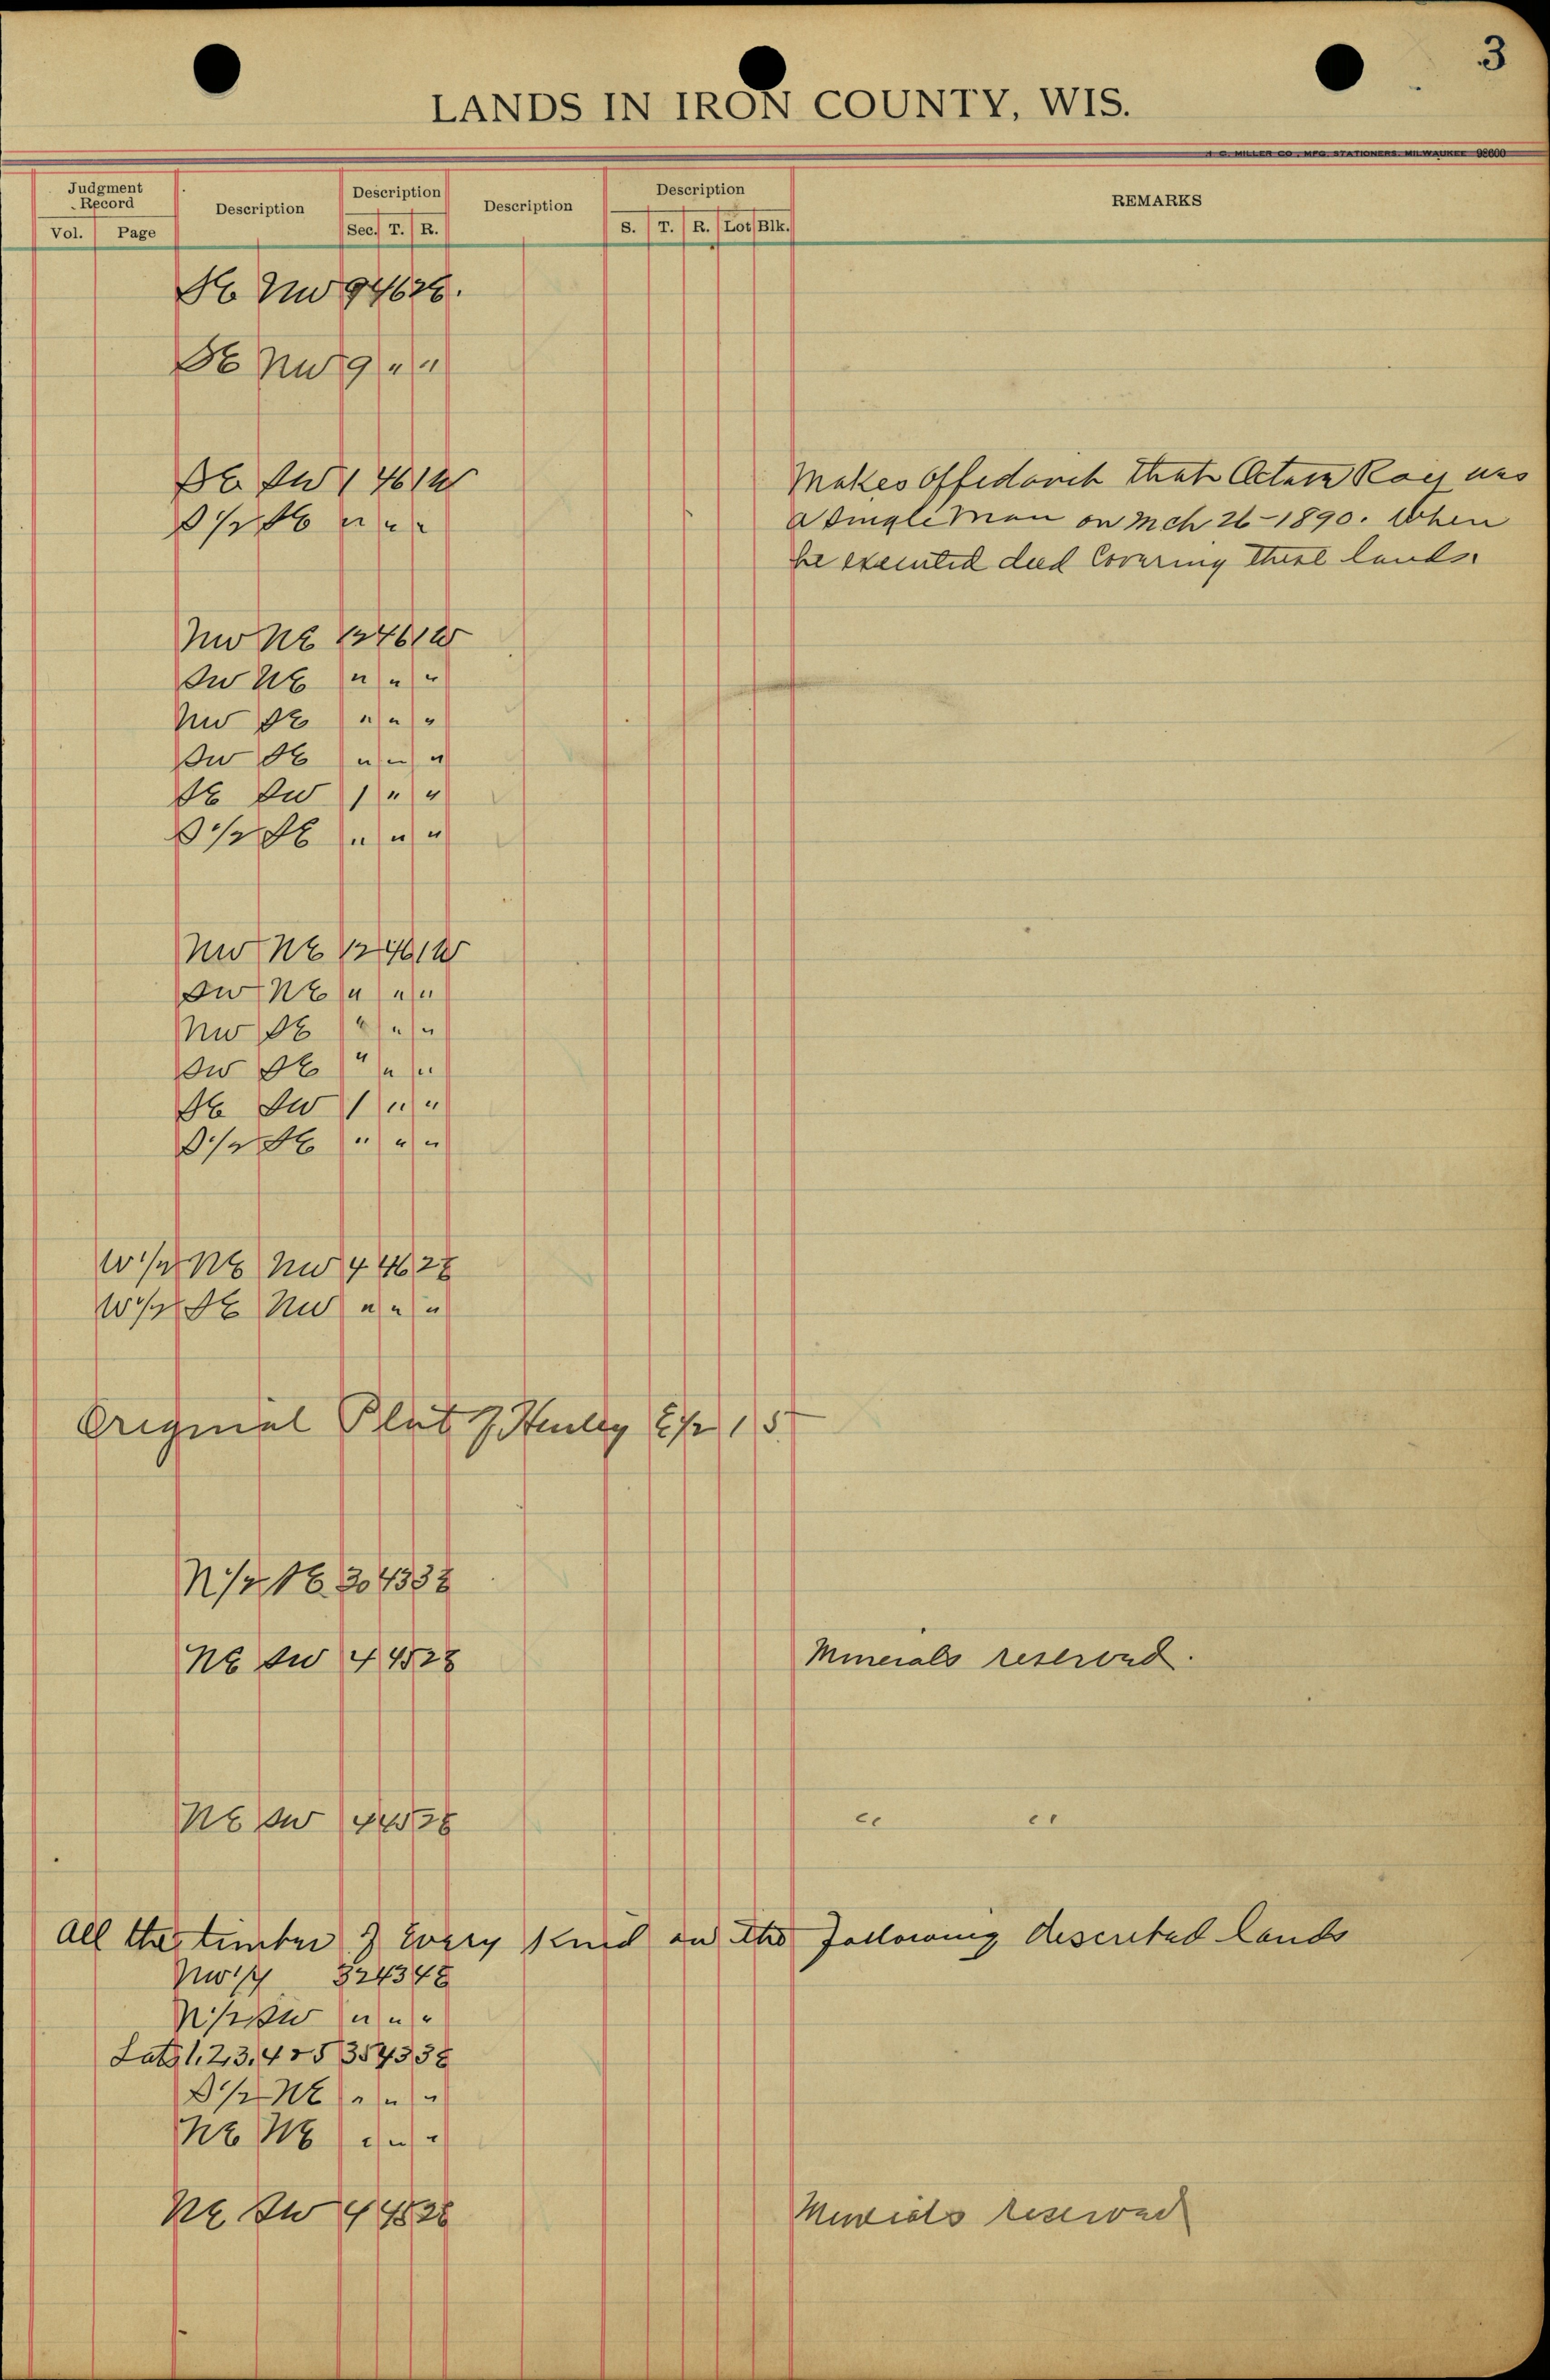 3
LANDS IN IRON COUNTY, WIS.
H. G. MILLER CO., MFG. STATIONERS, MILWAUKEE 98600
Judgment Record Description Description Description Description REMARKS
Vol. Page Sec. T. R. S. T. R. Lot Blk.
SE NW 9 46 2E.
SE NW 9 " "
SE SW 1 46 1W
S 1/2 SE " " "
Makes Affedavit that Roy was
a Single Man on Mch 26-1890. When
he executed deed Covering these lands.
NW NE 12 46 1W
SW NE " " "
NW SE " " "
SW SE " " "
SE SW 1 " "
S 1/2 SE " " "
NW NE 12 46 1W
SW NE " " "
NW SE " " "
SW SE " " "
SE SW 1 " "
S 1/2 SE " " "
W 1/2 NE NW 4 46 2E
W 1/2 SE NW " " "
Original Plat of Hurley E 1/2 1 5
N 1/2 SE 30 43 3E
NE SW 4 45 2E Minerals reserved.
NE SW 4 45 2E " "
All the timber of Every Kind on the following described lands
NW 1/4 32 43 4E
N 1/2 SW " " "
Lots 1, 2, 3, 4 & 5 35 43 3E
S 1/2 NE " " "
NE NE " " "
NE SW 4 45 2E Minerals reserved